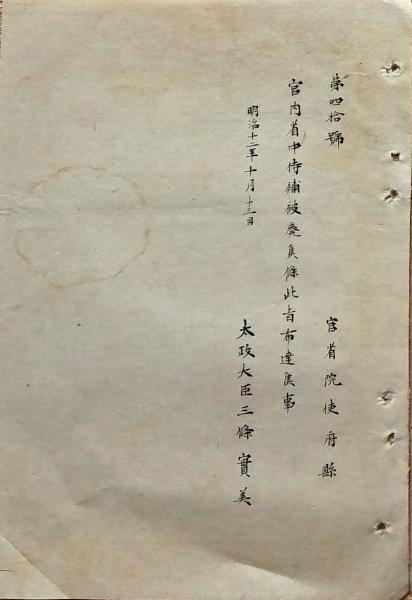 第四拾號
官省院使府縣
宮内省中侍補被廃候條此旨布達候事
明治十二年十月十三日
太政大臣三條實美